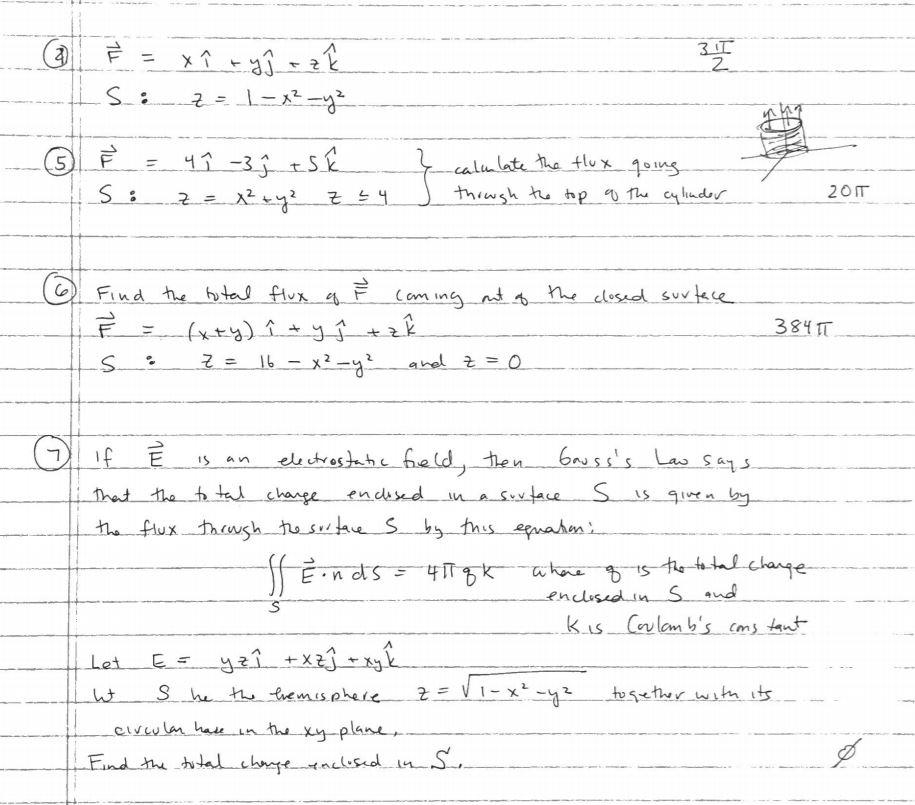 ④ F⃗ = x î + y ĵ + z k̂ 3π/2
S : z = 1 - x² - y²
⑤ F⃗ = 4 î - 3 ĵ + 5 k̂ } calculate the flux going
S : z = x² + y² z ≤ 4 through the top of the cylinder 20π
⑥ Find the total flux of F⃗ coming out of the closed surface
F⃗ = (x+y) î + y ĵ + z k̂ 384π
S : z = 16 - x² - y² and z = 0
⑦ If E⃗ is an electrostatic field, then Gauss's Law says
that the total charge enclosed in a surface S is given by
the flux through the surface S by this equation:
∬_S E⃗ · n dS = 4π q k where q is the total charge
enclosed in S and
K is Coulomb's constant
Let E = yz î + xz ĵ + xy k̂
let S be the hemisphere z = √(1 - x² - y²) together with its
circular base in the xy plane.
Find the total charge enclosed in S. ∅